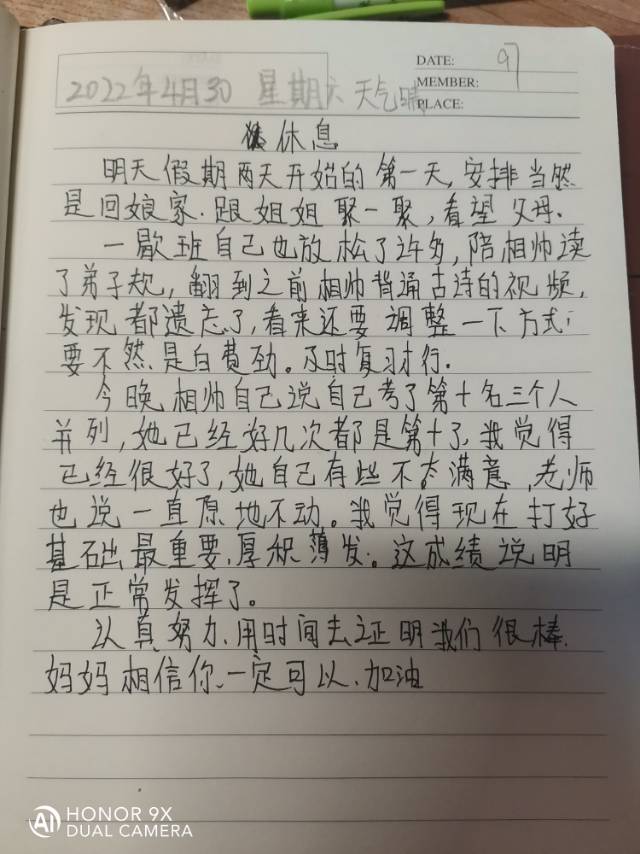 DATE: 97
MEMBER:
PLACE:
2022年4月30 星期六 天气晴
休息
明天假期两天开始的第一天,安排当然
是回娘家.跟姐姐聚一聚,看望父母.
一歇班自己也放松了许多,陪相帅读
了弟子规,翻到之前相帅背诵古诗的视频,
发现都遗忘了,看来还要调整一下方式;
要不然是白费劲。及时复习才行.
今晚相帅自己说自己考了第十名三个人
并列,她已经好几次都是第十了.我觉得
已经很好了,她自己有些不太满意,老师
也说一直原地不动。我觉得现在打好
基础最重要,厚积薄发。这成绩说明
是正常发挥了。
认真努力、用时间去证明我们很棒.
妈妈相信你、一定可以、加油
AI HONOR 9X
DUAL CAMERA